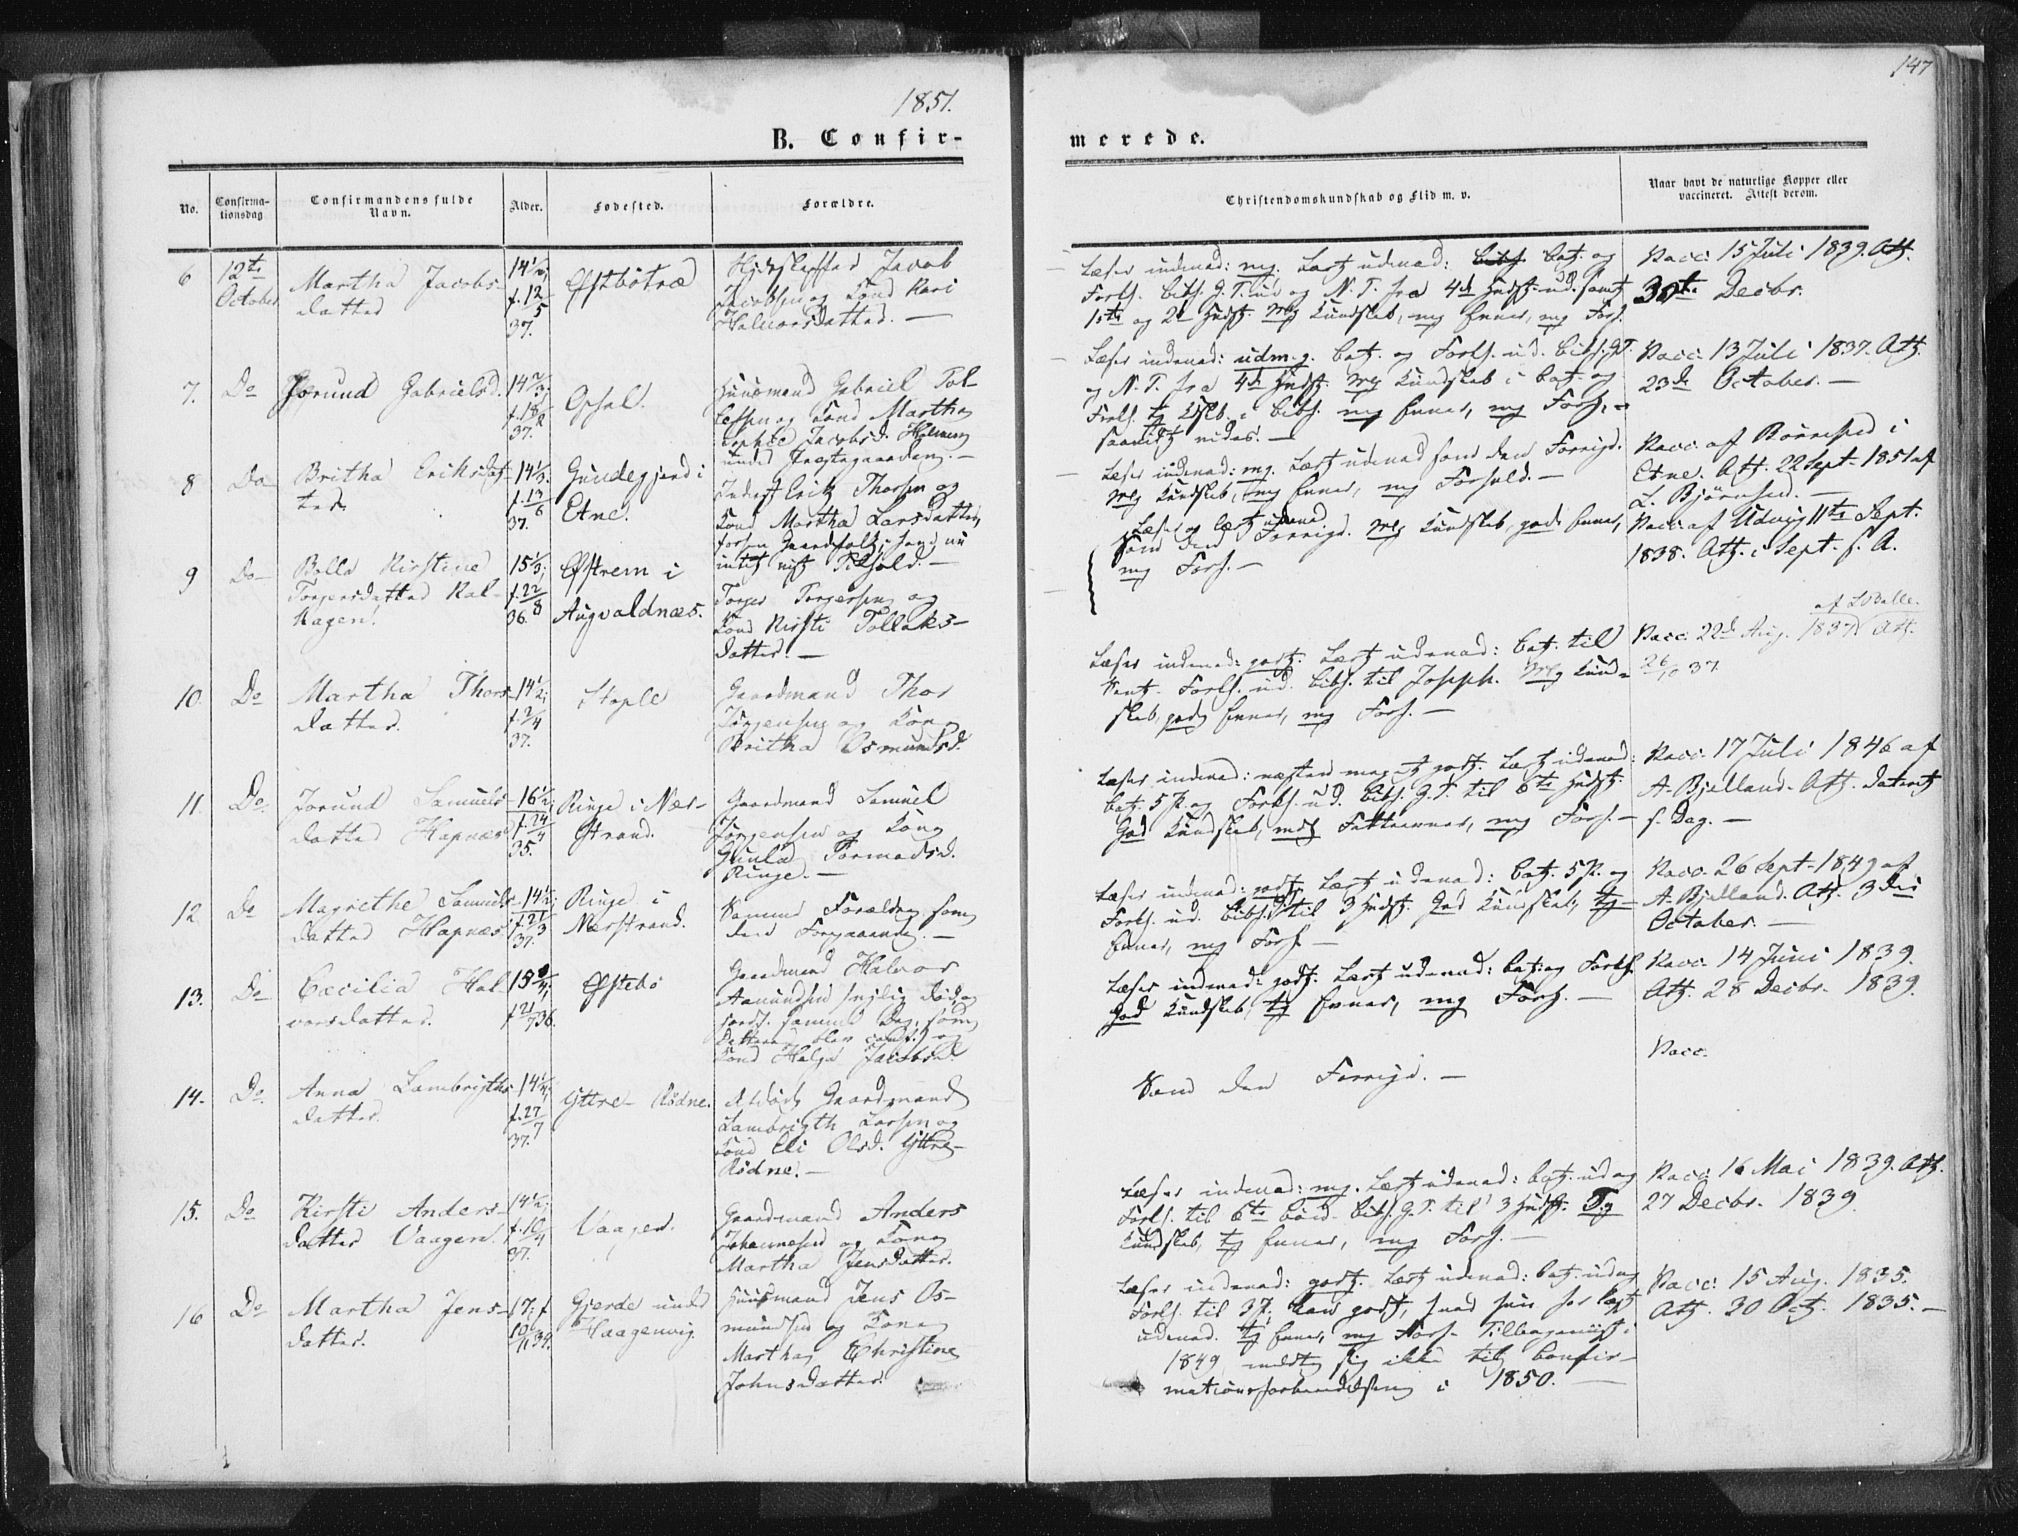 147
1851.
B. Confir-
merede.
No.
Confirma-
tionsdag
Confirmandens fulde
Navn.
Alder.
Fødested.
Forældre.
Christendomskundskab og Flid m. v.
Naar havt de naturlige Kopper eller
vaccineret. Attest derom.
6
12te
October
Martha Jacobs-
datter
14 1/2;
f. 12/5
37.
Jacob
Jacobsen og Kone Kari
Halvorsdatter. —
Læser indenad: mg. Lært udenad: Cat. og
Forkl. Bibh. G. T. ud og N. T. fra 4de Hndst. ud, samt
1ste og 2de Hndst. mg Kundskab, mg Evner, mg Forh.
Vacc. 15 Juli 1839. Att.
30te Decbr.
7.
Do
Jorund Gabrielsd.
14 2/3;
f. 18/2
37.
Opsal.
Huusmand Gabriel Tol-
lefsen og Kone Martha
Sophie Jacobsd. Holmen
under Præstegaarden. —
Læser indenad: udm. g. Cat. og Forkl. ud. Bibh. G. T.
og N. T. fra 4de Hndst. mg Kundskab i Cat. og
Forkl. tg Kskb. i Bibh. mg Evner, mg Forh.,
saavidt vides. —
Vacc. 13 Juli 1837. Att.
23de October. —
8
Do
Britha Eriksdat-
ter.
14 1/3.
f. 13/6
37.
Gundegjerd i
Etne.
Inderst Erik Thorsen og
Kone Martha Larsdatter,
forhen Gaardfolk; have nu
intet vist Tilhold. —
Læser indenad: mg. Lært udenad som den Forrige.
mg Kundskab, mg Evner, mg Forhold. —
Vacc. af Børresen i
Etne. Att. 22 Sept. 1851 af
L. Bjørnsen. —
9
Do
Bolla Kirstine
Torgersdatter Kal-
hagen.
15 1/3;
f. 22/8
36.
Østrem i
Augvaldnæs.
Torger Torgersen og
Kone Kirsti Tollaks-
datter. —
Læser og lært udenad
som den Forrige. mg Kundskab, gode Evner,
mg Forh. —
Vacc. af Udvig 11te Sept.
1838. Att. i Sept. s. A.
10.
Do
Martha Thors-
datter.
14 1/2;
f. 2/4
37.
Stople
Gaardmand Thor
Jørgensen og Kone
Britha Osmundsd.
Læser indenad: godt. Lært udenad: Cat. til
Forkl. ud. Bibh. til Joseph. mg Kund-
skab, gode Evner, mg Forh. —
af
Vacc. 22de Aug. 1837. Att.
26/10 37.
11.
Do
Jorund Samuels-
datter Hapnæs
16 1/2;
f. 24/4
35.
Ringe i Nær-
strand.
Gaardmand Samuel
Jørgensen og Kone
Gunla Tormodsd.
Ringe. —
Læser indenad: næsten meget godt. Lært udenad:
Cat. 5 P. og Forkl. ud. Bibh. G. T. til 6te Hndst.
God Kundskab, mdl Fatteevner, mg Forh. —
Vacc. 17 Juli 1846 af
A. Bjelland. Att. dateret
s. Dag. —
12
Do
Magrethe Samuels-
datter Hapnæs
14 1/2;
f. 21/3
37.
Ringe i
Nærstrand.
Samme Forældre som
den Foregaaende. —
Læser indenad: godt. Lært udenad: Cat. 5 P. og
Forkl. ud. Bibh. til 3 Hndst. God Kundskab, tg
Evner, mg Forh. —
Vacc. 26 Sept. 1849 af
A. Bjelland. Att. 3die
October. —
13.
Do
Cæcilia Hal-
vorsdatter.
15 1/4;
f. 21/7 36.
Østebø
Gaardmand Halvor
Aamundsen
samme Dag, som
Datteren blev conf.) og
Kone Helga Jacobsd.
Læser indenad: godt. Lært udenad: Cat. og Forkl.
God Kundskab, tg Evner, mg Forh. —
Vacc. 14 Juni 1839.
Att. 28 Decbr. 1839.
14.
Do.
Anna Lambrigths-
datter.
14 1/4;
f. 27/7
37.
Yttre-Rødne.
Afdøde Gaardmand
Lambrigth Larsen og
Kone Eli Olsd. Yttre-
Rødne. —
Som den Forrige. —
Vacc.
15.
Do
Kirsti Anders-
datter Vaagen.
14 1/2;
f. 10/4
37.
Vaagen.
Gaardmand Anders
Johannesen og Kone
Martha Jensdatter.
Læser indenad: mg. Lært udenad: Cat. ud og
Forkl. til 6te Bøn. Bibh. G. T. til 3 Hndst. Tg
Kundskab, tg Evner, mg Forh. —
Vacc. 16 Mai 1839. Att.
27 Decbr. 1839
16
Do
Martha Jens-
datter.
17; f.
Gjerde under
Haagenvig.
Huusmand Jens Os-
mundsen og Kone
Martha Christine
Johnsdatter.
Læser indenad: godt. Lært udenad: Cat. ud og
Forkl. til 3 P.; kan godt, hvad hun har lært
udenad. tg Evner, mg Forh. Tilbageviist i
1849, meldte sig ikke til Confir-
mationsforberedelsen i 1850. —
Vacc. 15 Aug. 1835.
Att. 30 Oct. 1835. —